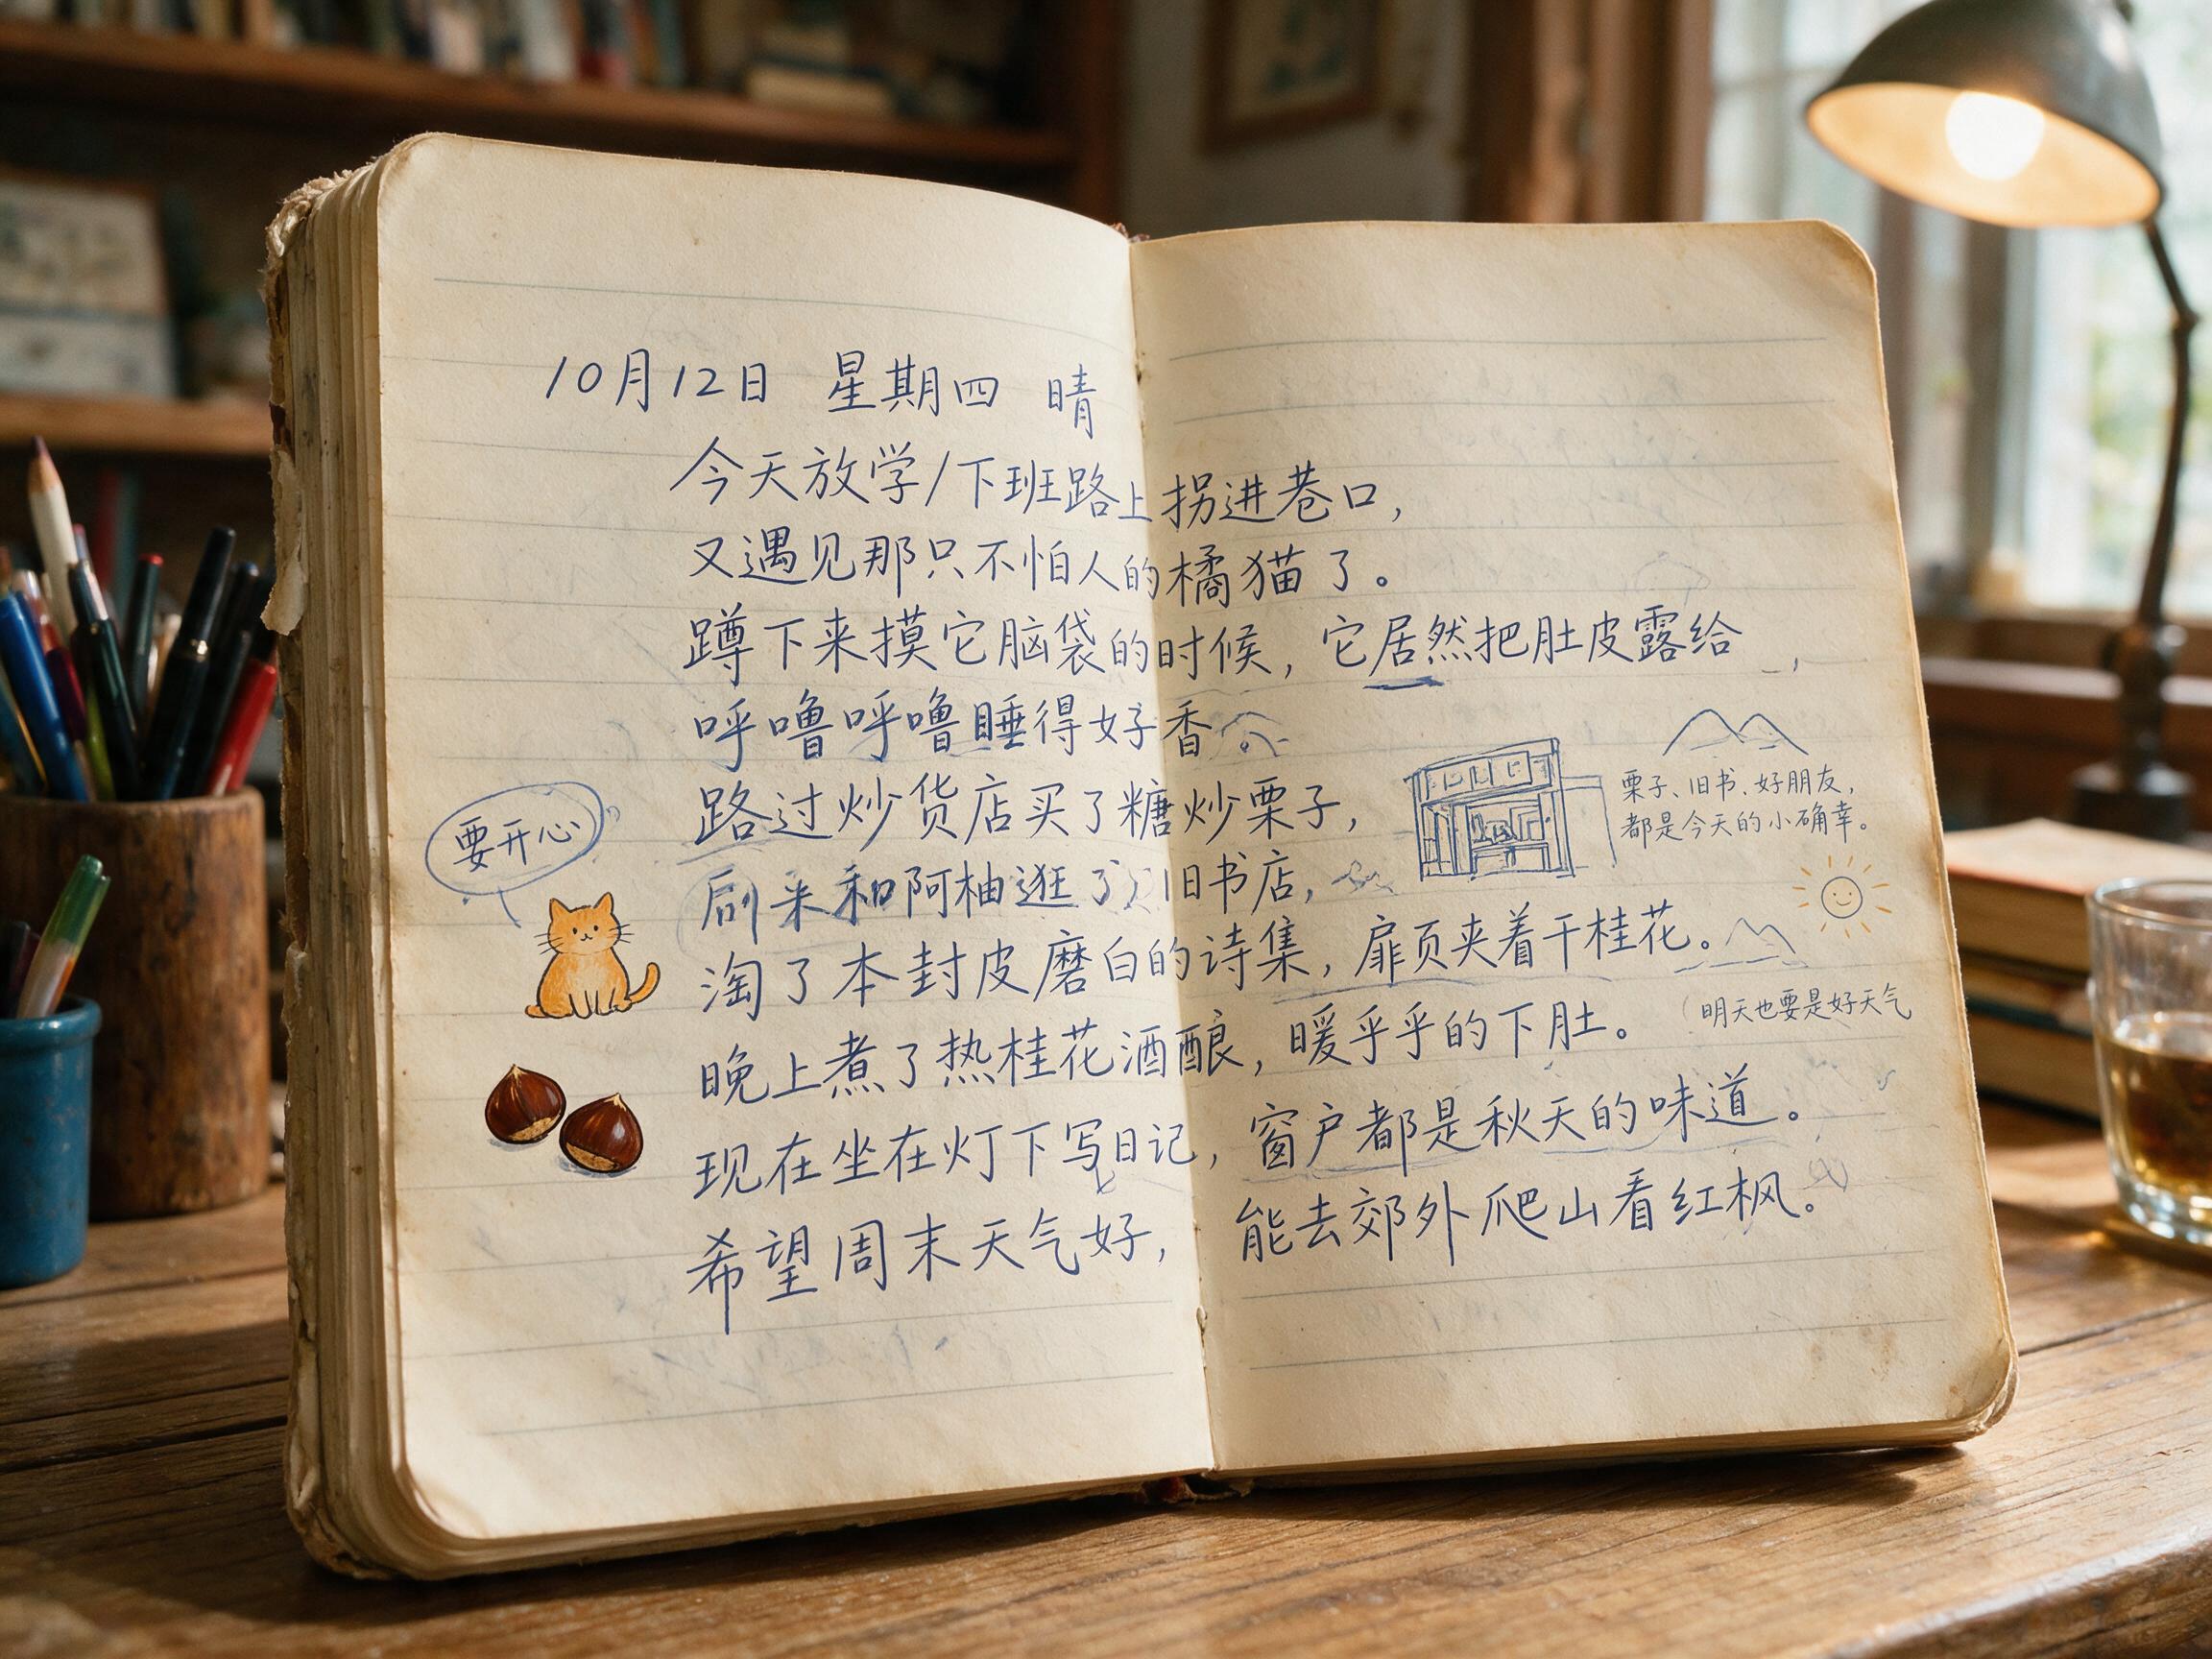 10月12日 星期四 晴
今天放学/下班路上拐进巷口，
又遇见那只不怕人的橘猫了。
蹲下来摸它脑袋的时候，它居然把肚皮露给
呼噜呼噜睡得好香。
路过炒货店买了糖炒栗子，
来和阿柚逛了旧书店，
淘了本封皮磨白的诗集，扉页夹着干桂花。
晚上煮了热桂花酒酿，暖乎乎的下肚。
现在坐在灯下写日记，窗户都是秋天的味道。
希望周末天气好，能去郊外爬山看红枫。
要开心
栗子、旧书、好朋友，
都是今天的小确幸。
明天也要是好天气